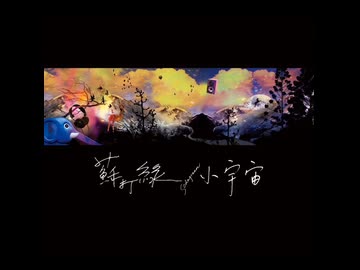 蘇打綠 小宇宙